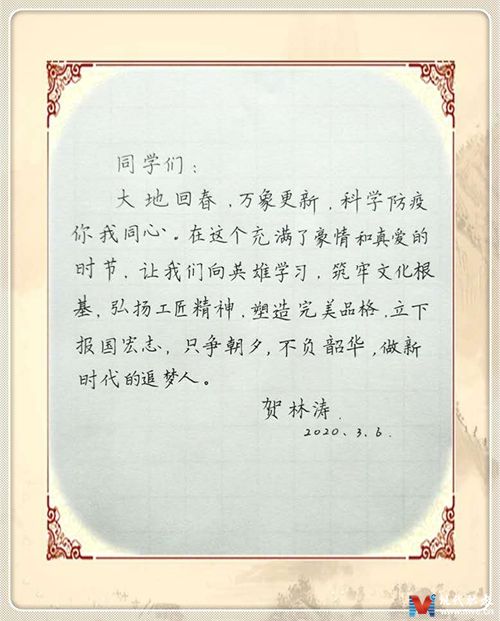 同学们：
大地回春，万象更新，科学防疫
你我同心。在这个充满了豪情和真爱的
时节，让我们向英雄学习，筑牢文化根
基，弘扬工匠精神，塑造完美品格，立下
报国宏志，只争朝夕，不负韶华，做新
时代的追梦人。
贺林涛
2020.3.6.